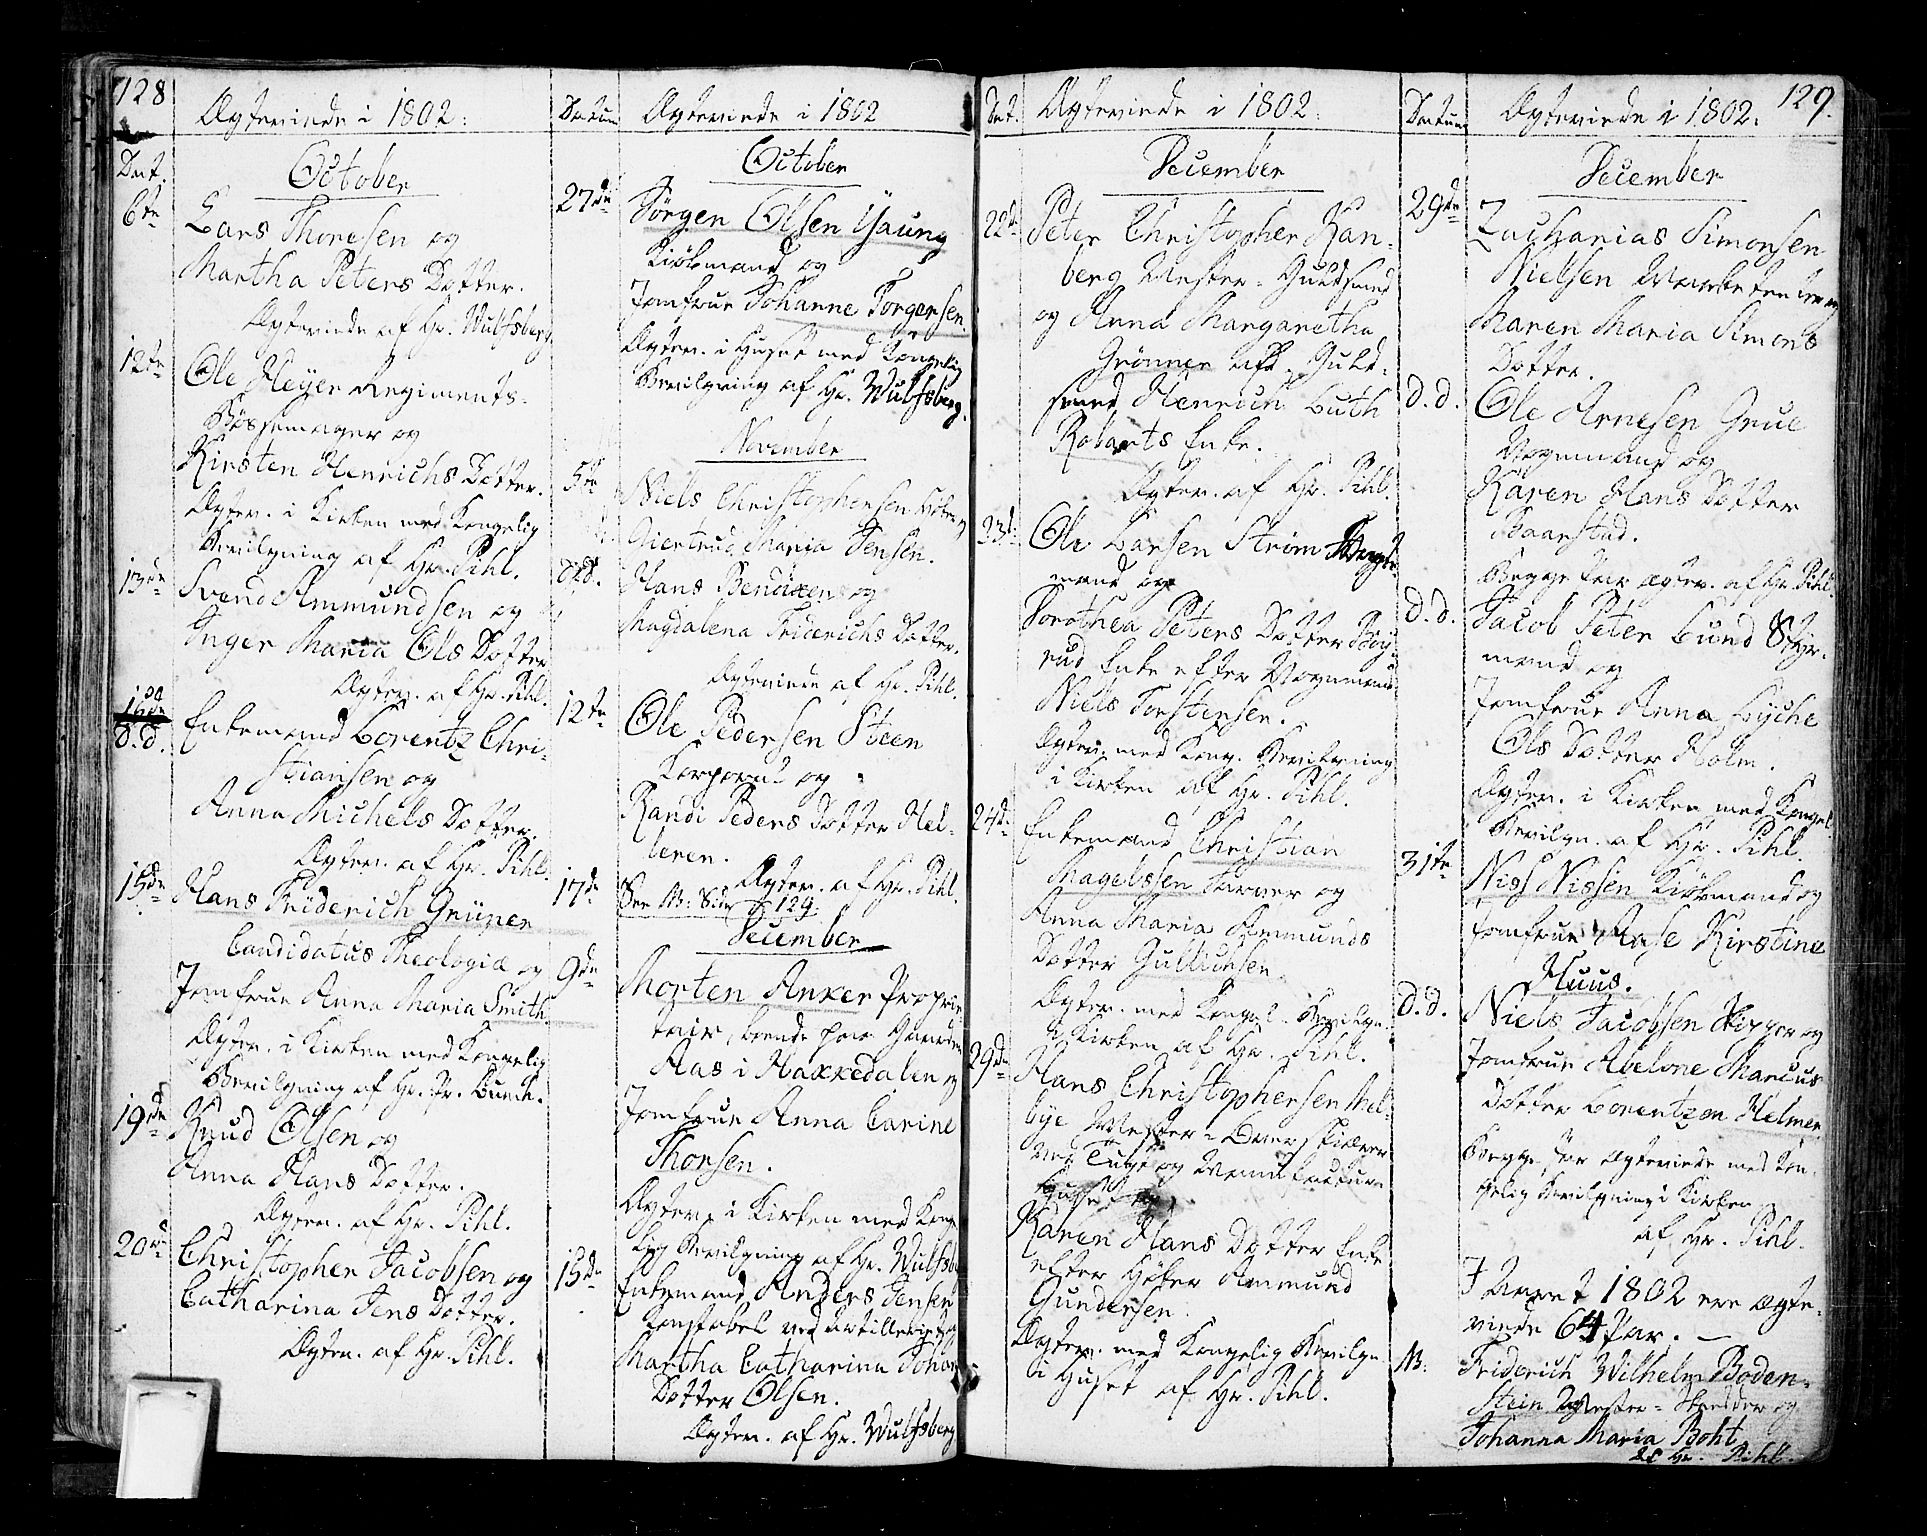 128
Ægteviede i 1802.
Dat.
October
6te
Lars Thoresen og
Martha Peters Dotter.
Ægteviede af Hr. Wulfsberg
12te
Ole Heyer Regiments-
Bøssemager og
Kirsten Henrichs Dotter.
Ægtev. i Kirken med Kongelig
Bevilgning af Hr. Pihl.
13de
Svend Ammundsen og
Inger Maria Ols Dotter
Ægtev. af Hr. Pihl.
d.d.
Enkemand Lorentz Chri-
stiansen og
Anna Michels Dotter.
Ægtev. af Hr. Pihl.
15de
Hans Friderich Grüner
Candidatus Theologiæ og
Jomfrue Anna Maria Smith.
Ægtev. i Kirken med Kongelig
Bevilgning af Hr. Pr. Lunch.
19de
Knud Olsen og
Anna Hans Dotter.
Ægtev. af Hr. Pihl.
20de
Christopher Jacobsen og
Catharina Jens Dotter.
Ægtev. af Hr. Pihl.
Datum
Ægteviede i 1802
October
27de
Jørgen Olsen Haung
Kiøbmand og
Jomfrue Johanne Jørgensen
Ægtev. i Huset med Kongelig
Bevilgning af Hr. Wulfsberg.
November
5te
Niels Christophersen og
Giertrud Maria Jensen.
d.d.
Hans Bendixen og
Magdalena Friderichs Dotter.
Ægteviede af Hr. Pihl.
12te
Ole Pedersen Steen
Korporal og
Randi Peders Dotter Hel-
leren.
Ægtev. af Hr. Pihl.
17de
See NB: Side 129
December
9de
Morten Anker Proprie-
tair, boende paa Gaarden
Aas i Hakkedalen og
Jomfrue Anna Carine
Thorsen.
Ægtev. i Kirken med Konge-
lig Bevilgning af Hr. Wulfsb
15de
Enkemand Anders Jensen
Constabel ved Artilleriet og
Martha Catharina Johan
Dotter Olsen.
Ægtev. af Hr. Wulfsberg
Dat.
Ægteviede i 1802.
December
22de
Peter Christopher Ran-
berg Mester-Guldsmed
og Anna Margaretha
Grönner afd. Guld-
smed Henrich Luth
Robarts Enke.
Ægtev. af Hr. Pihl.
23de
Ole Larsen Strøm Vogn-
mand og
Dorothea Peters Dotter Røy
rud Enke efter Vognmand
Niels Torstensen.
Ægtev. med Kong. Bevilgning
i Kirken af Hr. Pihl.
24de
Enkemand Christian
Magelssen Farver og
Anna Maria Ammunds
Dotter Gullichsen
Ægtev. med Kongel. Bevilgn.
i Kirken af Hr. Pihl.
29de
Hans Christophersen Mel-
bye Mester-Overskiærer
ved Tugt og Manufactur
Huset og
Karen Hans Dotter Enke
efter Høker Ammund
Gundersen.
Ægtev. med Kongelig Bevilgn.
i Huset af Hr. Pihl.
Datum
Ægteviede i 1802.
129.
December
29de
Zacharias Simonsen
Nielsen
Maren Maria Simons
Dotter.
d.d.
Ole Arnesen Grue
Vognmand og
Karen Hans Dotter
Baarstad.
Begge Par ægtev. af Hr. Pihl.
d.d.
Jacob Peter Lund Styr-
mand og
Jomfrue Anna Lyche
Ols Dotter Holm.
Ægtev. i Kirken med Kongel.
Bevilgn. af Hr. Pihl.
31te
Niss Nissen Kiøbmand og
Jomfrue Aase Kirstine
Huus.
d.d.
Niels Jacobsen Skipper og
Jomfrue Abelone Marcus
Dotter Lorentzen Helmer
Begge Par Ægteviede med Kon-
gelig Bevilgning i Kirken
af Hr. Pihl.
I Aaret 1802 ere Ægte-
viede 64 Par. —
NB:
Friderich Wilhelm Boden-
stein Mester-Skrædder og
Johanna Maria Boht
af Hr. Pihl.